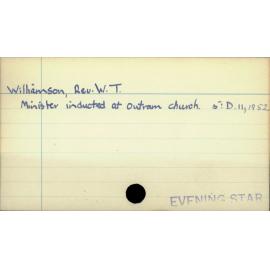 Williamson, Rev. W. T.
Minister inducted at Outram church. s: D. 11, 1952
EVENING STAR